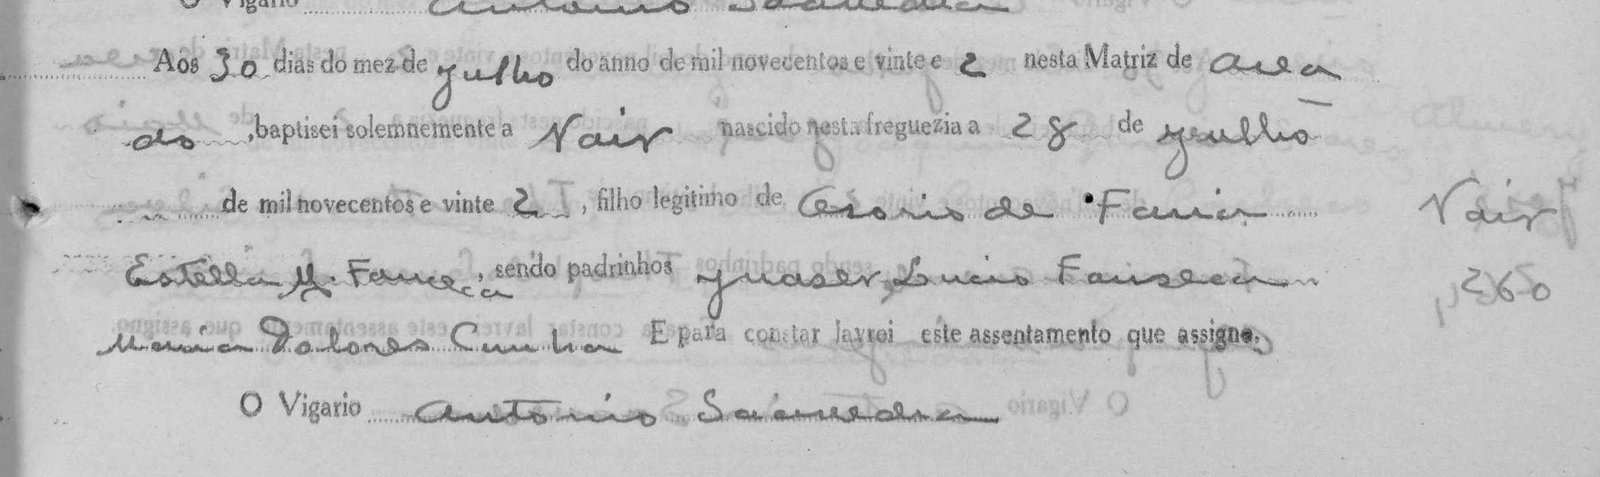 O Vigario Antonio Saavedra
Aos 30 dias do mez de Julho do anno de mil novecentos e vinte e 2 nesta Matriz de Area
do, baptisei solemnemente a Nair nascido nesta freguezia a 28 de Julho
de mil novecentos e vinte 2, filho legitimo de Cesario de Faria Nair
Estella M. Fonseca, sendo padrinhos Lucio Fonseca 260
Maria Dolores Cunha E para constar lavrei este assentamento que assigno.
O Vigario Antonio Saavedra